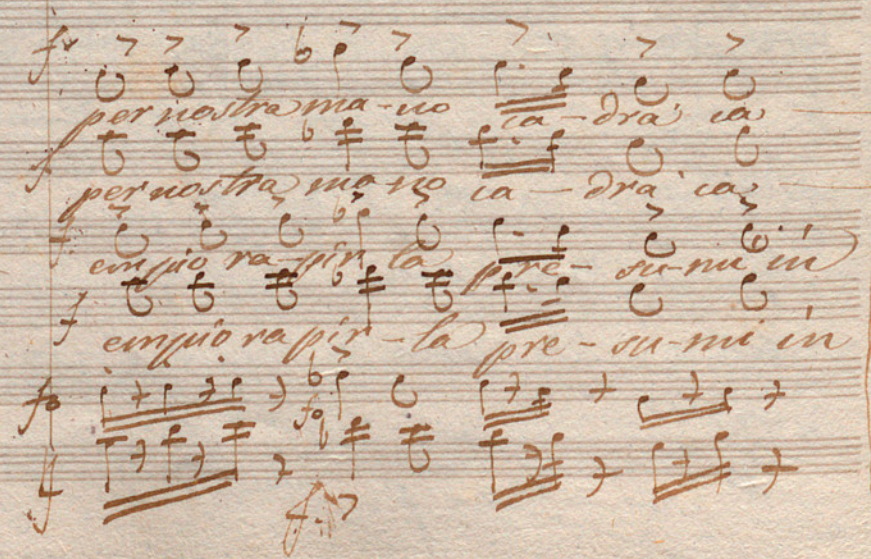 fo
per nostra ma-no ca-drà ca
f
per nostra ma-no ca-drà ca
f
empio rapir la pre-su-mi in
f
empio rapir-la pre-su-mi in
fo
fo
f
f